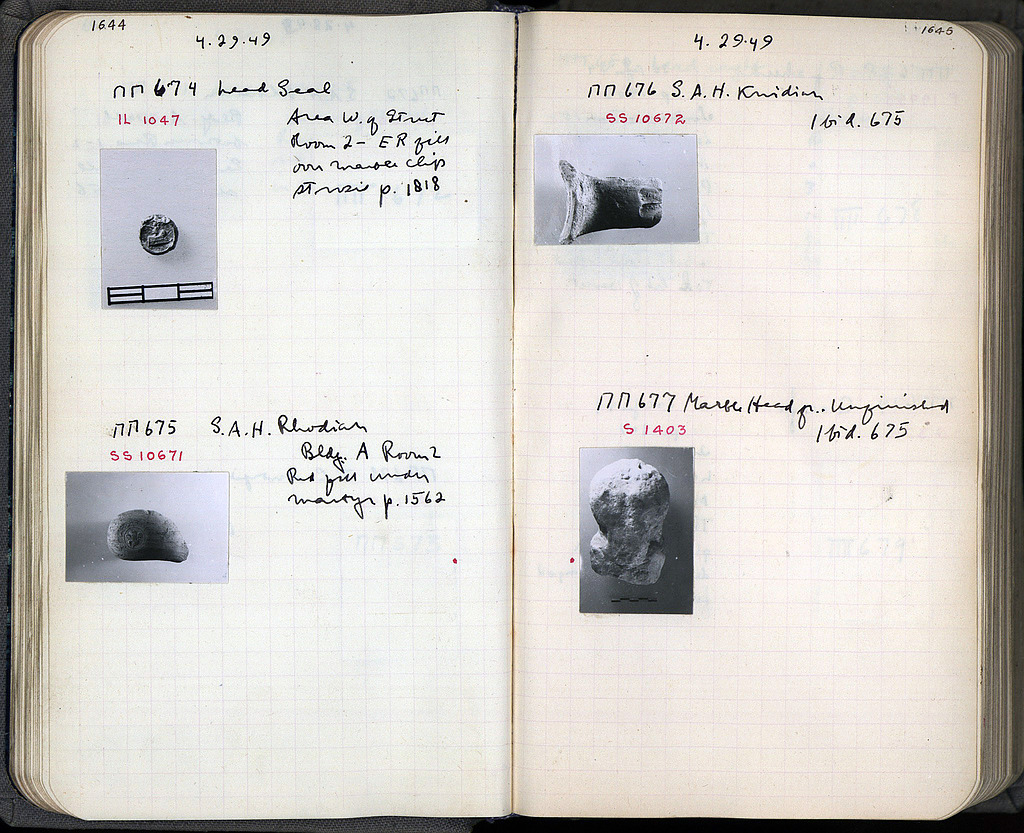 1644
4.29.49
ΠΠ 674 Lead Seal
IL 1047
Area W. of Street
Room 2 - ER fill
over marble chip
p. 1818
ΠΠ 675 S.A.H. Rhodian
SS 10671
Bldg. A Room 2
Red fill under
martyr p. 1562
1645
4.29.49
ΠΠ 676 S.A.H. Knidian
SS 10672
Ibid. 675
ΠΠ 677 Marble Head fr. Unfinished
S 1403
Ibid. 675